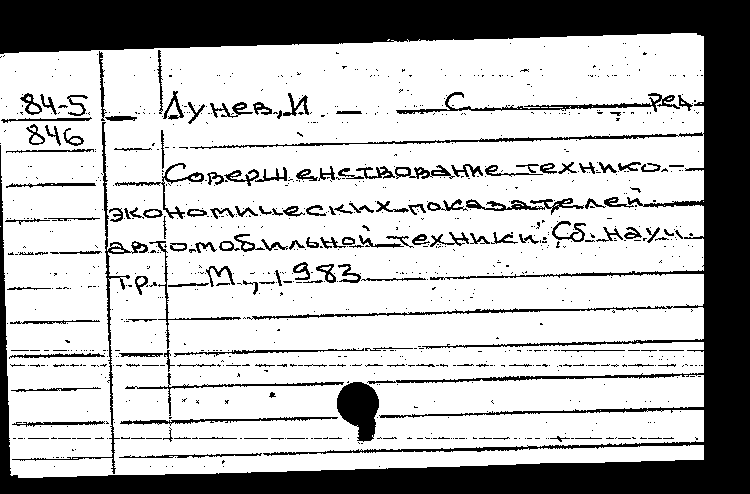 84-5
846
Лунев, И С ред.
Совершенствование технико-
экономических показателей
автомобильной техники. Сб. науч.
тр. М., 1983